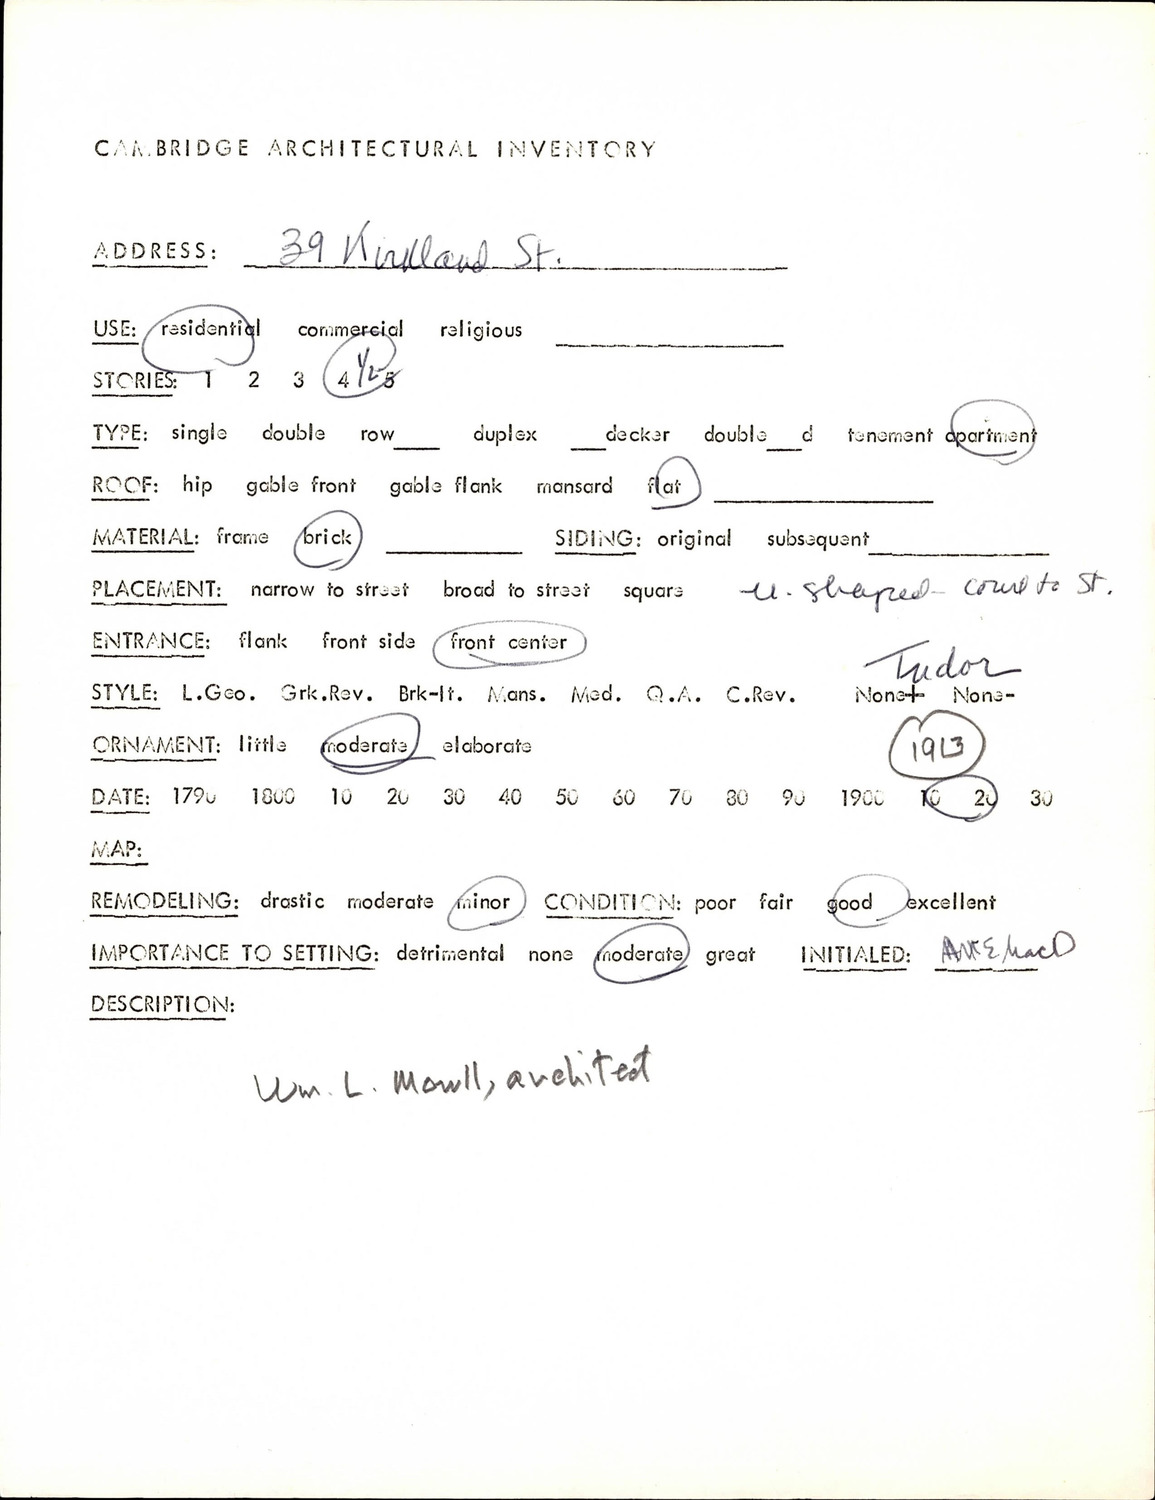 CAMBRIDGE ARCHITECTURAL INVENTORY
ADDRESS: 39 Kirkland St.
USE: residential commercial religious
STORIES: 1 2 3 4 1/2 5
TYPE: single double row___ duplex ___decker double___d tenement apartment
ROOF: hip gable front gable flank mansard flat
MATERIAL: frame brick SIDING: original subsequent
PLACEMENT: narrow to street broad to street square U-shaped - court to St.
ENTRANCE: flank front side front center
Tudor
STYLE: L.Geo. Grk.Rev. Brk-It. Mans. Med. Q.A. C.Rev. None+ None-
ORNAMENT: little moderate elaborate 1913
DATE: 1790 1800 10 20 30 40 50 60 70 80 90 1900 10 20 30
MAP:
REMODELING: drastic moderate minor CONDITION: poor fair good excellent
IMPORTANCE TO SETTING: detrimental none moderate great INITIALED:
DESCRIPTION:
Wm. L. Mowll, architect